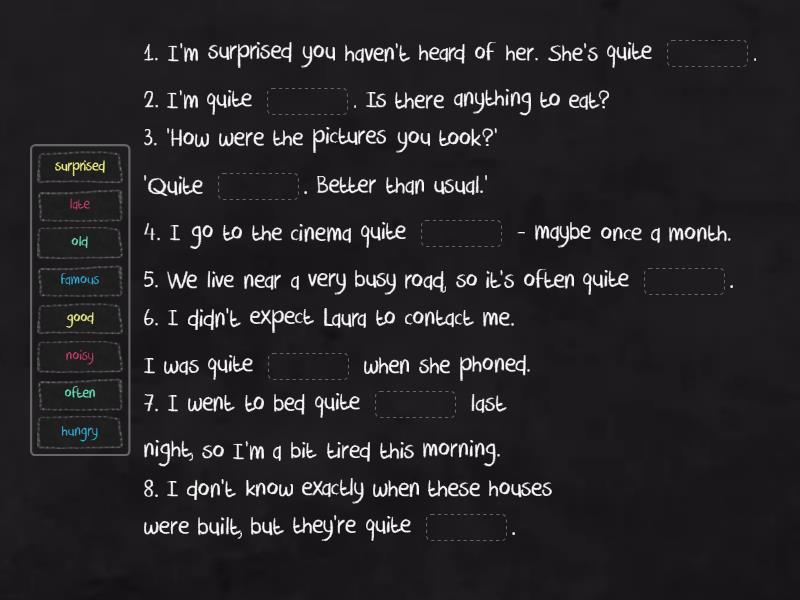 1. I'm surprised you haven't heard of her. She's quite .
2. I'm quite . Is there anything to eat?
3. 'How were the pictures you took?'
'Quite . Better than usual.'
4. I go to the cinema quite - maybe once a month.
5. We live near a very busy road, so it's often quite .
6. I didn't expect Laura to contact me.
I was quite when she phoned.
7. I went to bed quite last
night, so I'm a bit tired this morning.
8. I don't know exactly when these houses
were built, but they're quite .
surprised
late
old
famous
good
noisy
often
hungry